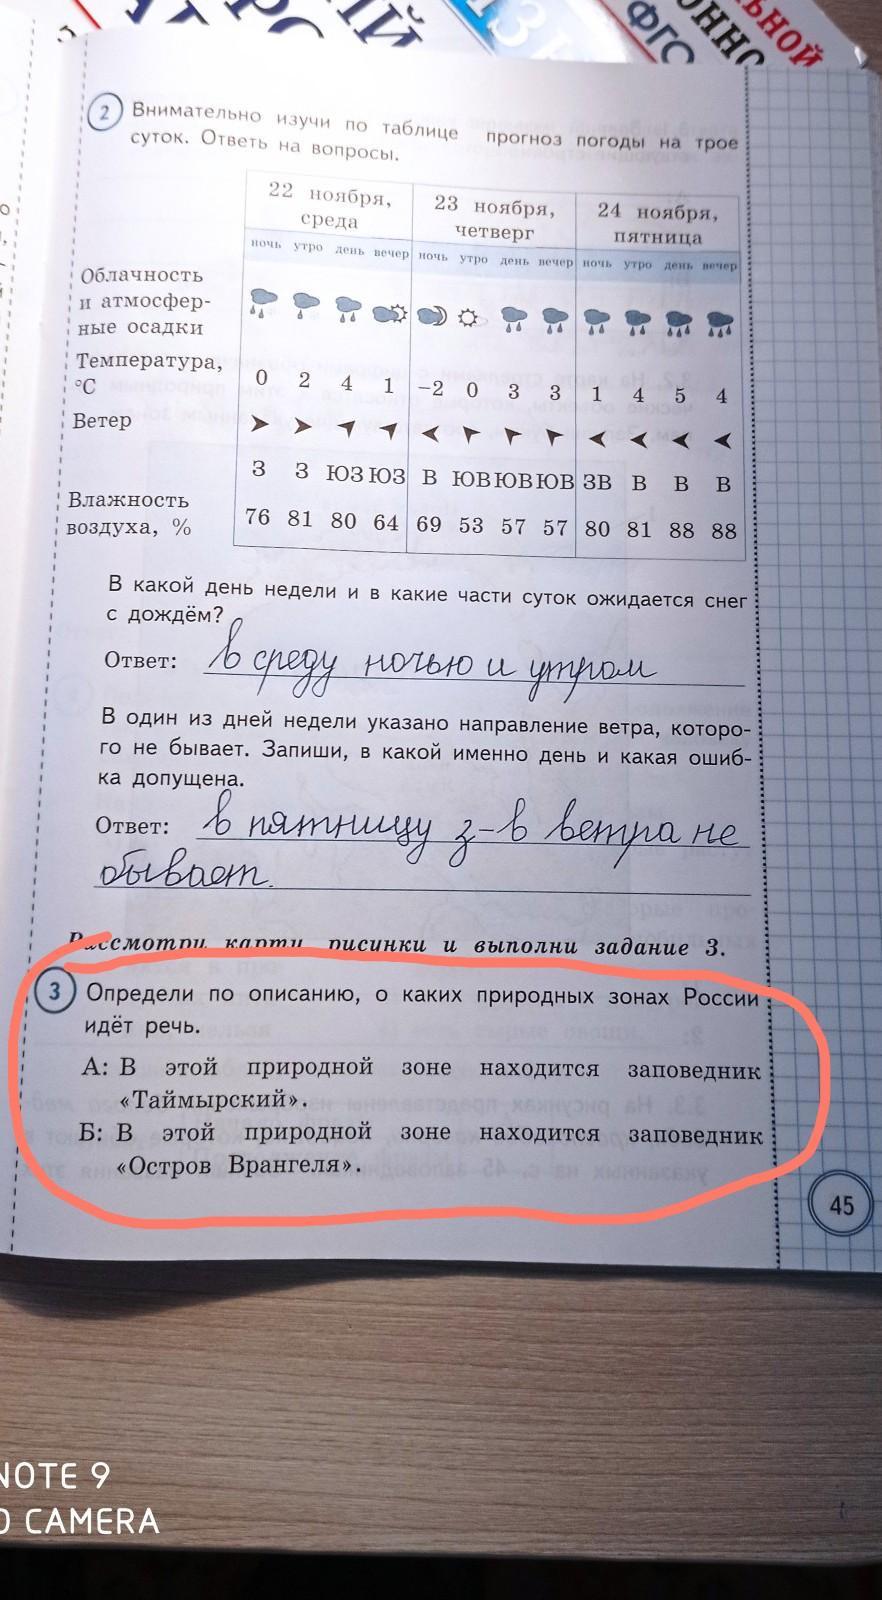 ЗН
ФГО
ОННО
ЛЬНОЙ
2 Внимательно изучи по таблице прогноз погоды на трое
суток. Ответь на вопросы.
22 ноября, среда 23 ноября, четверг 24 ноября, пятница
ночь утро день вечер ночь утро день вечер ночь утро день вечер
Облачность
и атмосфер-
ные осадки
Температура, °С 0 2 4 1 −2 0 3 3 1 4 5 4
Ветер
З З ЮЗ ЮЗ В ЮВ ЮВ ЮВ ЗВ В В В
Влажность
воздуха, % 76 81 80 64 69 53 57 57 80 81 88 88
В какой день недели и в какие части суток ожидается снег
с дождём?
Ответ: в среду ночью и утром
В один из дней недели указано направление ветра, которо-
го не бывает. Запиши, в какой именно день и какая ошиб-
ка допущена.
Ответ: в пятницу з-в ветра не
бывает.
Рассмотри карту, рисунки и выполни задание 3.
3 Определи по описанию, о каких природных зонах России
идёт речь.
А: В этой природной зоне находится заповедник
«Таймырский».
Б: В этой природной зоне находится заповедник
«Остров Врангеля».
45
NOTE 9
O CAMERA